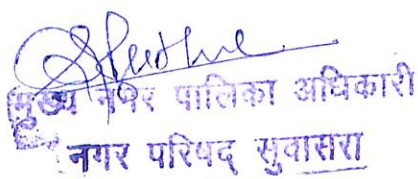 मुख्य नगर पालिका अधिकारी
नगर परिषद् सुवासरा